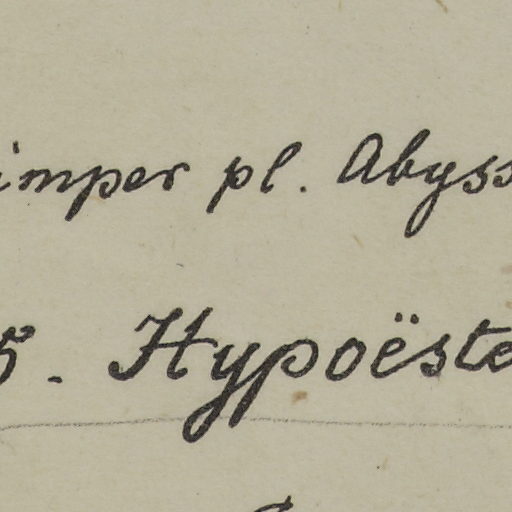 imper pl. Abyss
5. Hypoëste